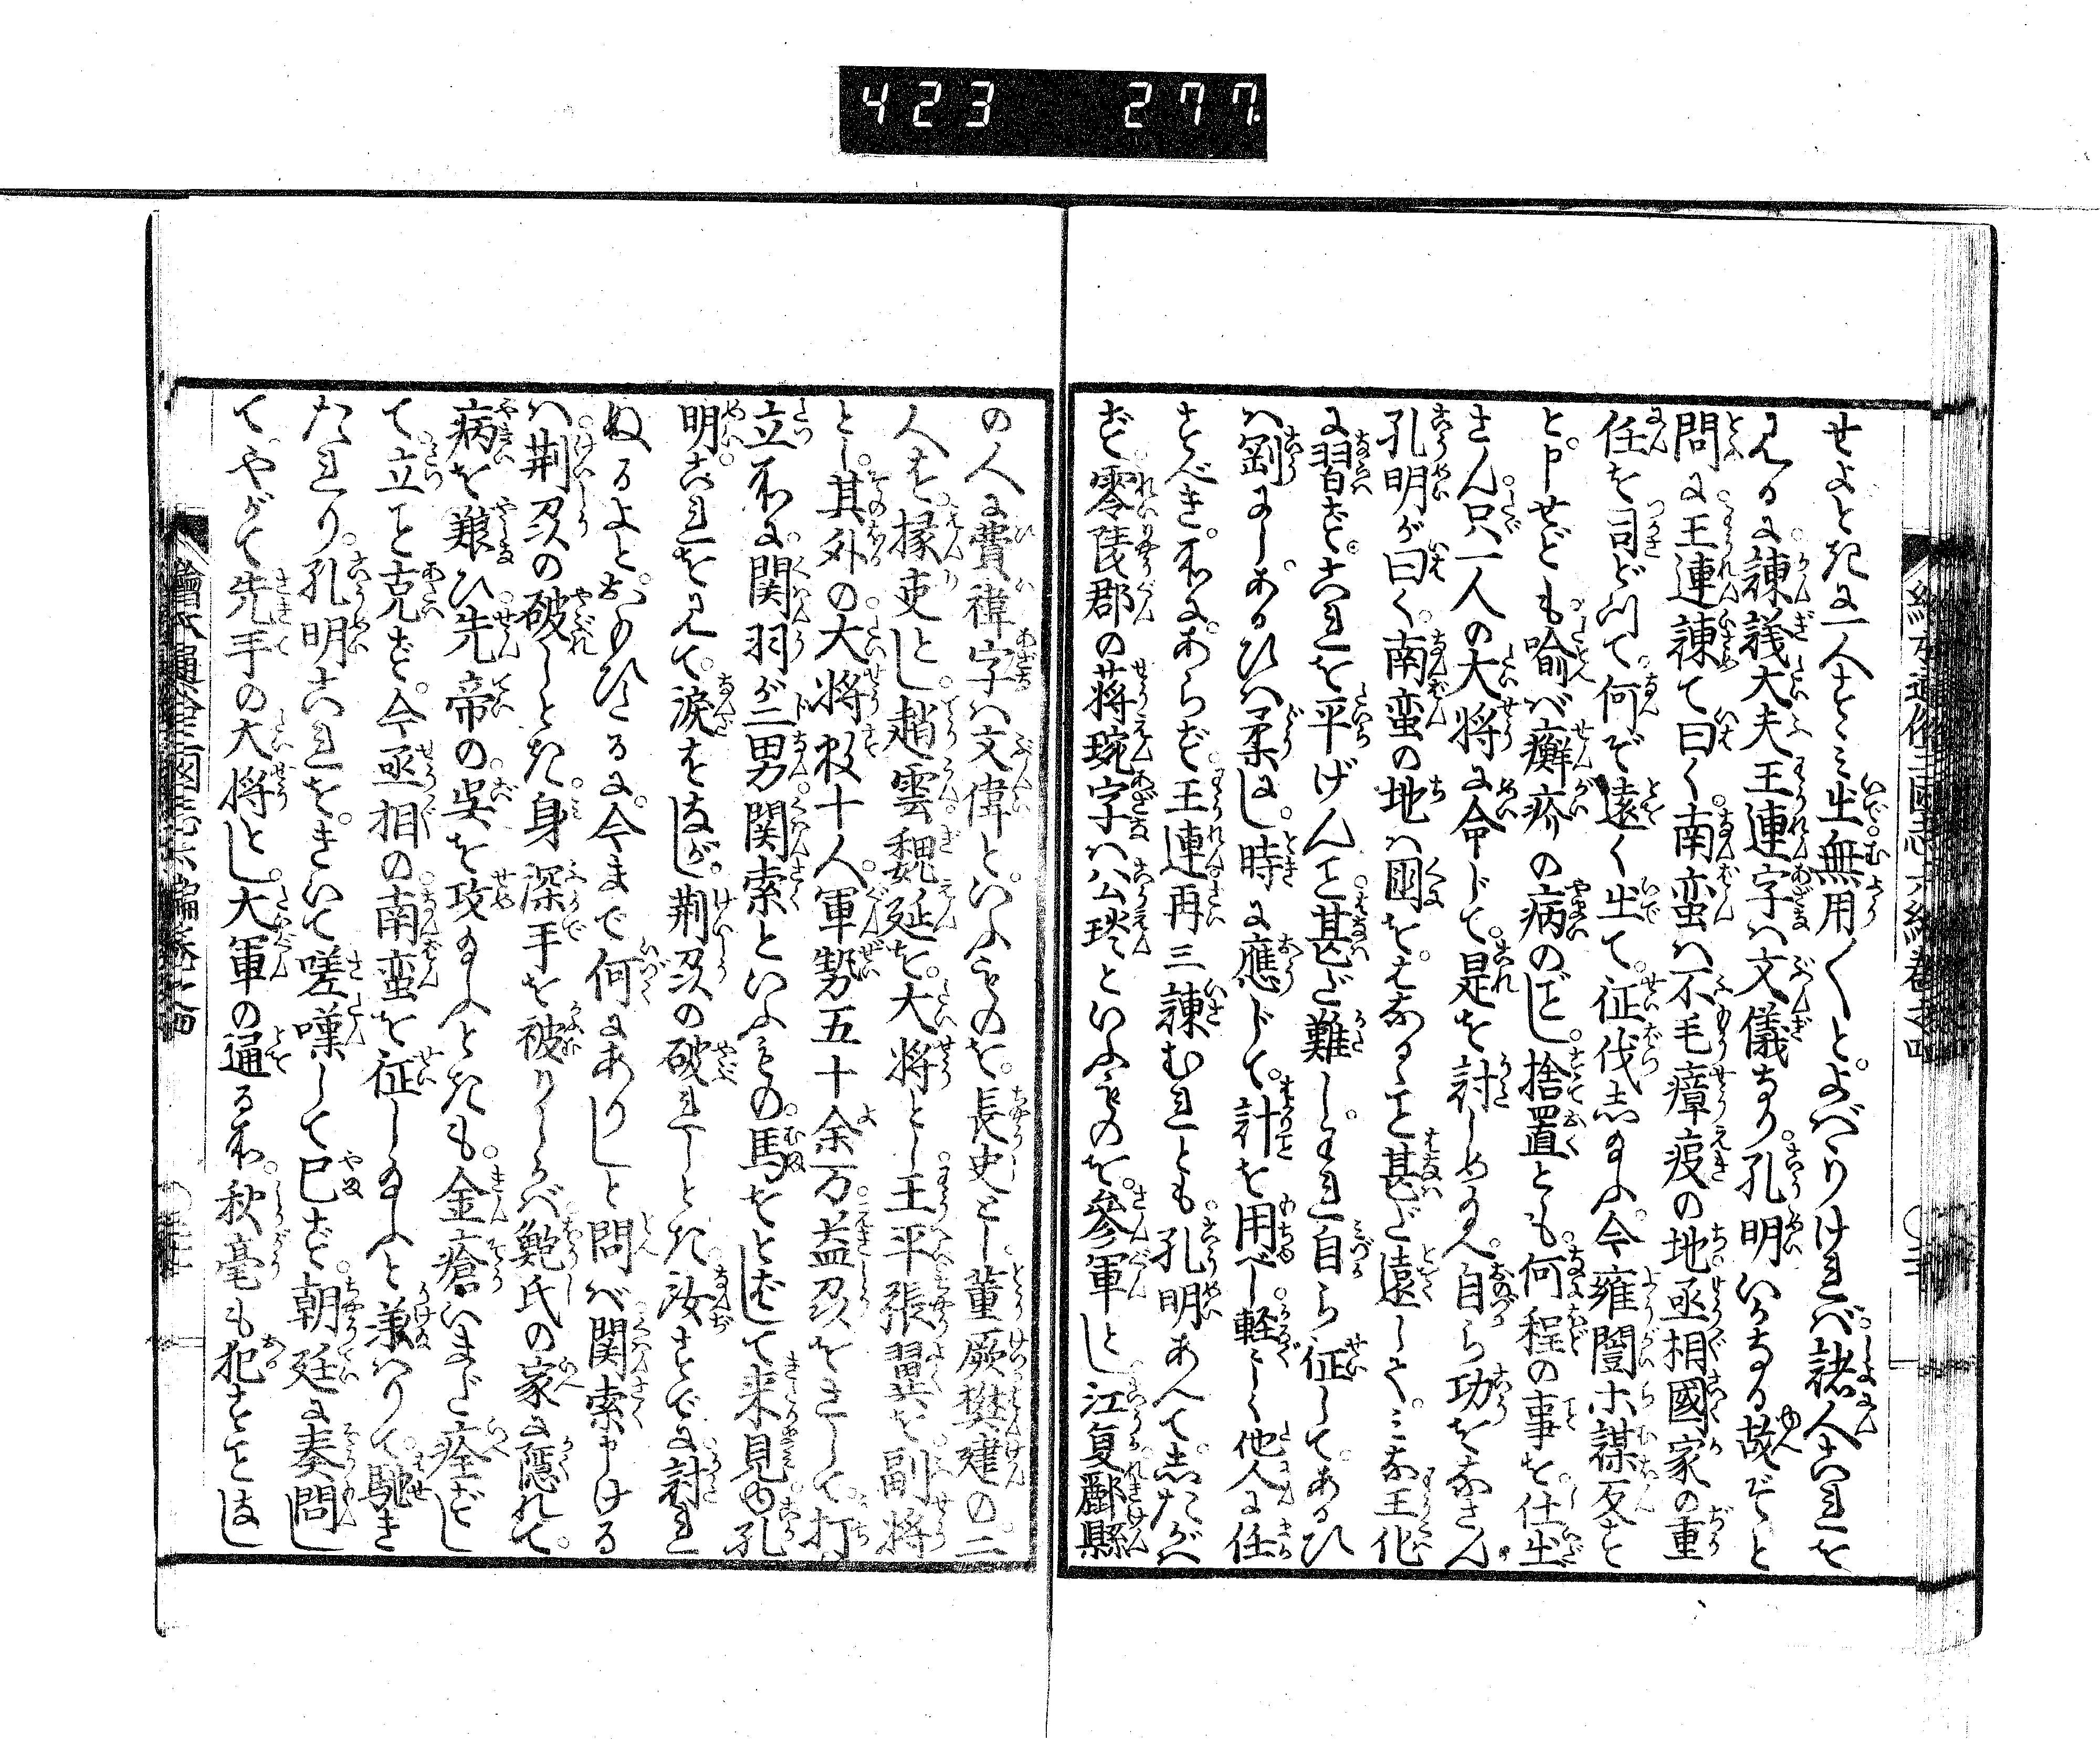 423 277.
せよときに一人すゝミ出無用〱とよバりければ諸人これを
見るに諫議大夫王連字ハ文儀なり孔明いかなる故ぞと
問に王連諫て曰く南蛮ハ不毛瘴疫の地丞相國家の重
任を司どつて何ぞ遠く出て征伐し玉ふ今雍闓ホ謀反を
と申せども喩バ癬疥の病のごとし捨置とも何程の事を仕出
さん只一人の大将に命じて是を討しめ玉へ自ら功をなさん
孔明が曰く南蛮の地ハ國をはなるヿ甚ど遠しミな王化
に習ずこれを平げんヿ甚ど難しわれ自ら征してあるひ
ハ剛にしあるひハ柔にし時に應じて計を用べし軽〻しく他人に任
すべき所にあらず王連再三諫むれども孔明あへてしたがへ
ず零陵郡の蒋琬字ハ公琰といふものを參軍とし江夏酈縣
の人に費禕字ハ文偉といふものを長史とし董厥樊建の二
人を掾吏とし趙雲魏延を大将とし王平張翼を副将
とし其外の大将数十人軍勢五十余万益州をさして打
立所に関羽が二男関索といふもの馬をとばして来見ゆ孔
明これを見て涙をながし荊州の破れしとき汝すでに討れ
ぬるよとおもひたるに今まで何にありしと問バ関索申ける
ハ荊州の破しとき身深手を被りしかバ鮑氏の家に隱れて
病を艱ひ先帝の呉を攻玉ふときも金瘡いまだ痊ずし
て立ヿ克ず今丞相の南蛮を征し玉ふと兼ハりて馳き
たれり孔明これをきいて嗟嘆して已ず朝廷に奏問し
てやがて先手の大将とし大軍の通る所秋毫も犯すヿなし